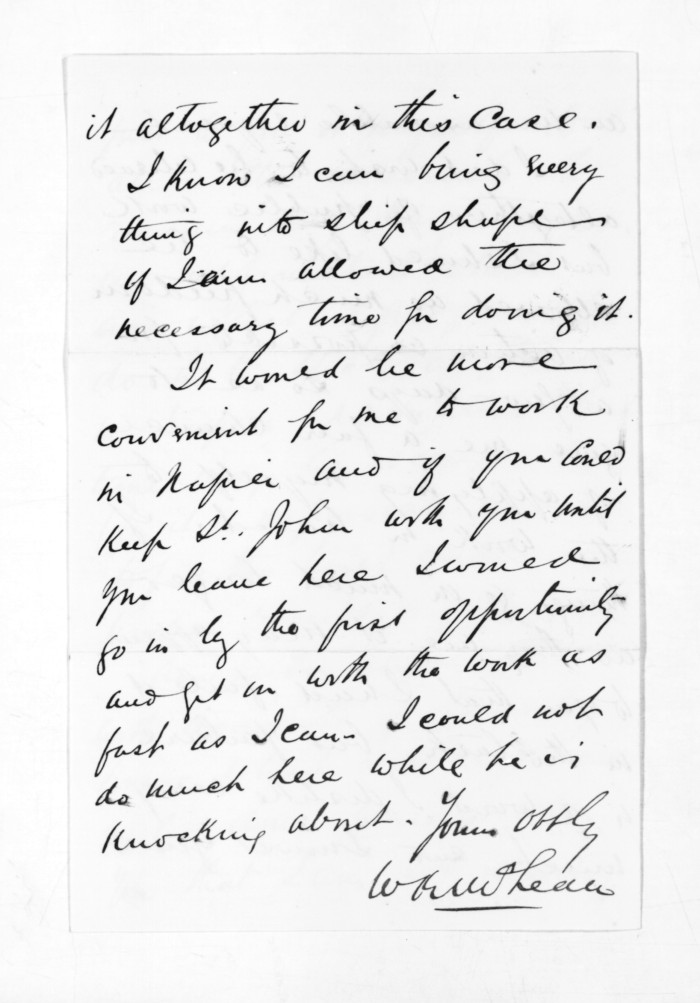 it altogether in this case.
I know I can bring every
thing into ship shape
if I am allowed the
necessary time for doing it.
It would be more
convenient for me to work
in Napier and if you could
keep St. John with you until
you leave here I would
go in by the first opportunity
and get on with the work as
fast as I can - I could not
do much here while he is
knocking about. Yours obtly